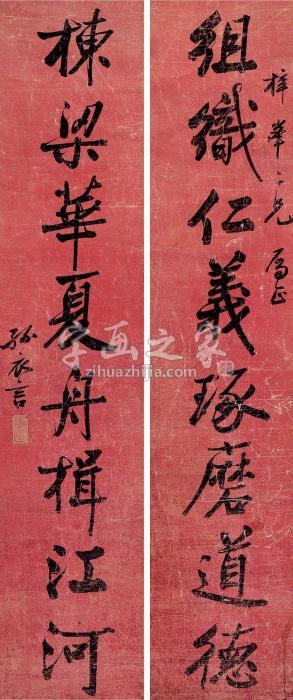 组織仁義琢磨道德
梓華二兄屬正
棟梁華夏舟楫江河
孫衣言
字画之家
zihuazhijia.com